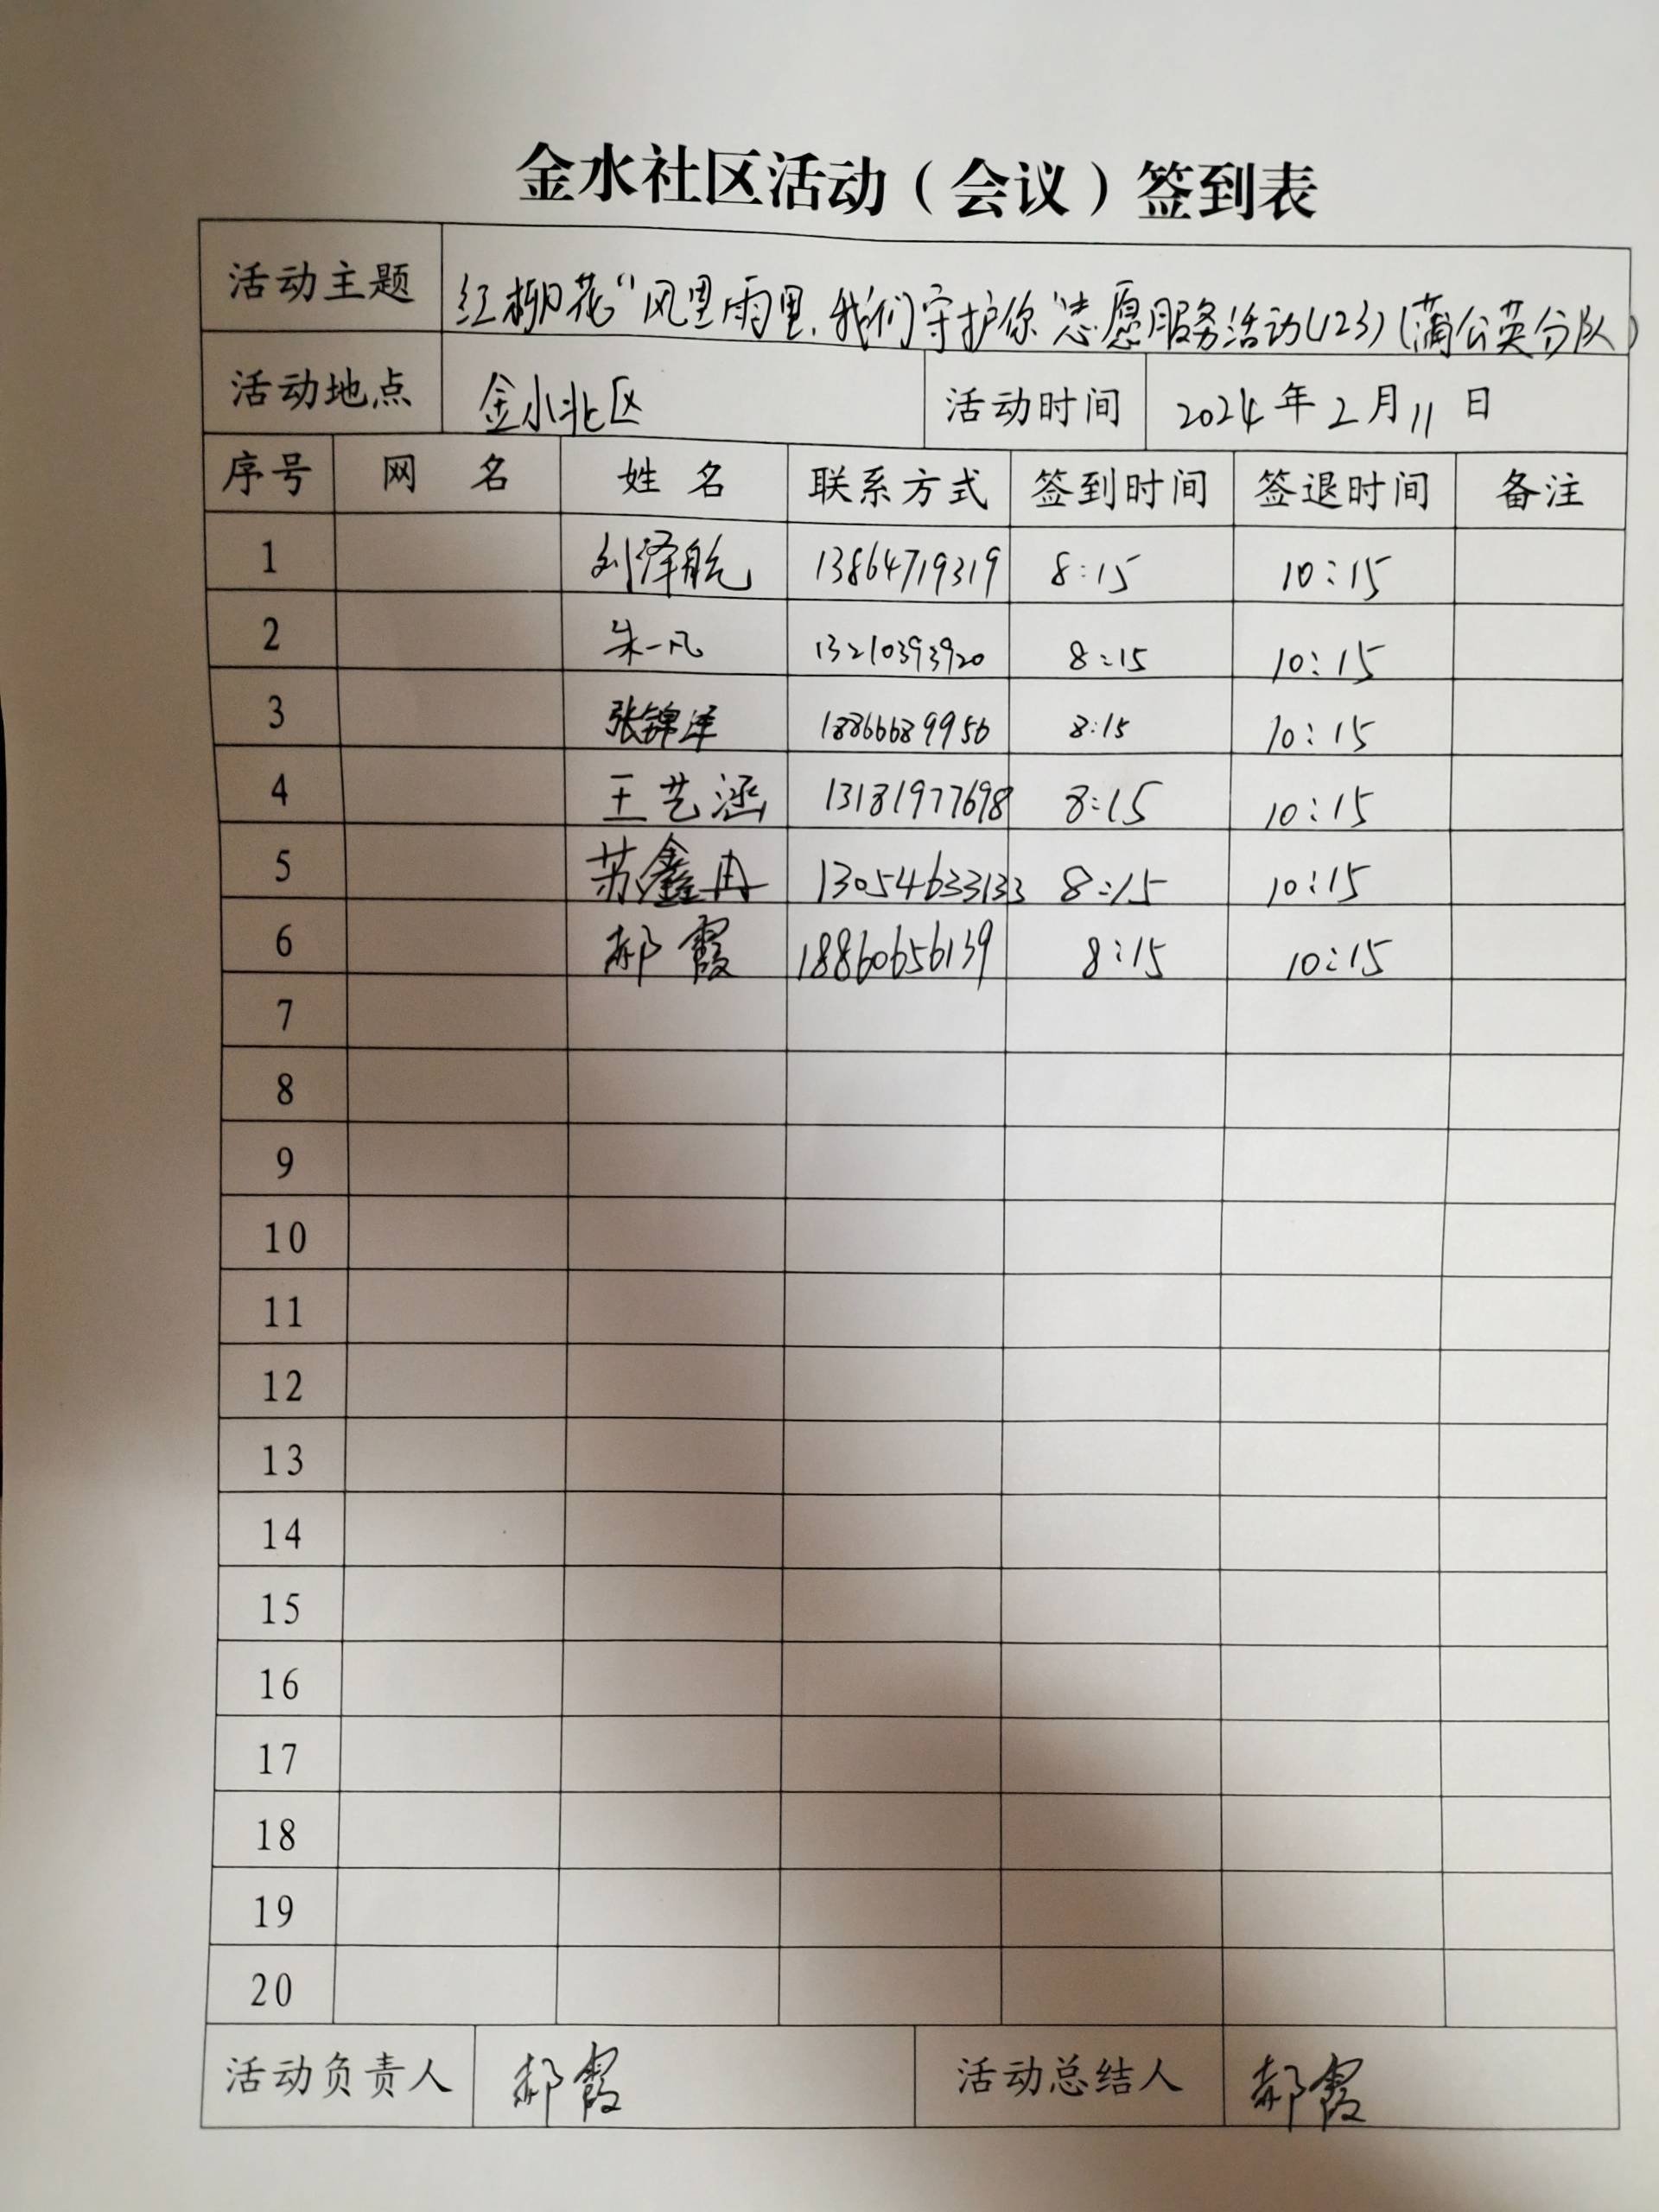 金水社区活动（会议）签到表
活动主题 红柳花“风里雨里，我们守护你”志愿服务活动(123)(蒲公英分队)
活动地点 金水北区 活动时间 2024年2月11日
序号 网 名 姓 名 联系方式 签到时间 签退时间 备注
1 刘泽航 13864719319 8:15 10:15
2 朱一凡 13210393920 8:15 10:15
3 张锦泽 18866689956 8:15 10:15
4 王艺涵 13181977698 8:15 10:15
5 苏鑫冉 13054633133 8:15 10:15
6 郝霞 18860656139 8:15 10:15
7
8
9
10
11
12
13
14
15
16
17
18
19
20
活动负责人 郝霞 活动总结人 郝霞